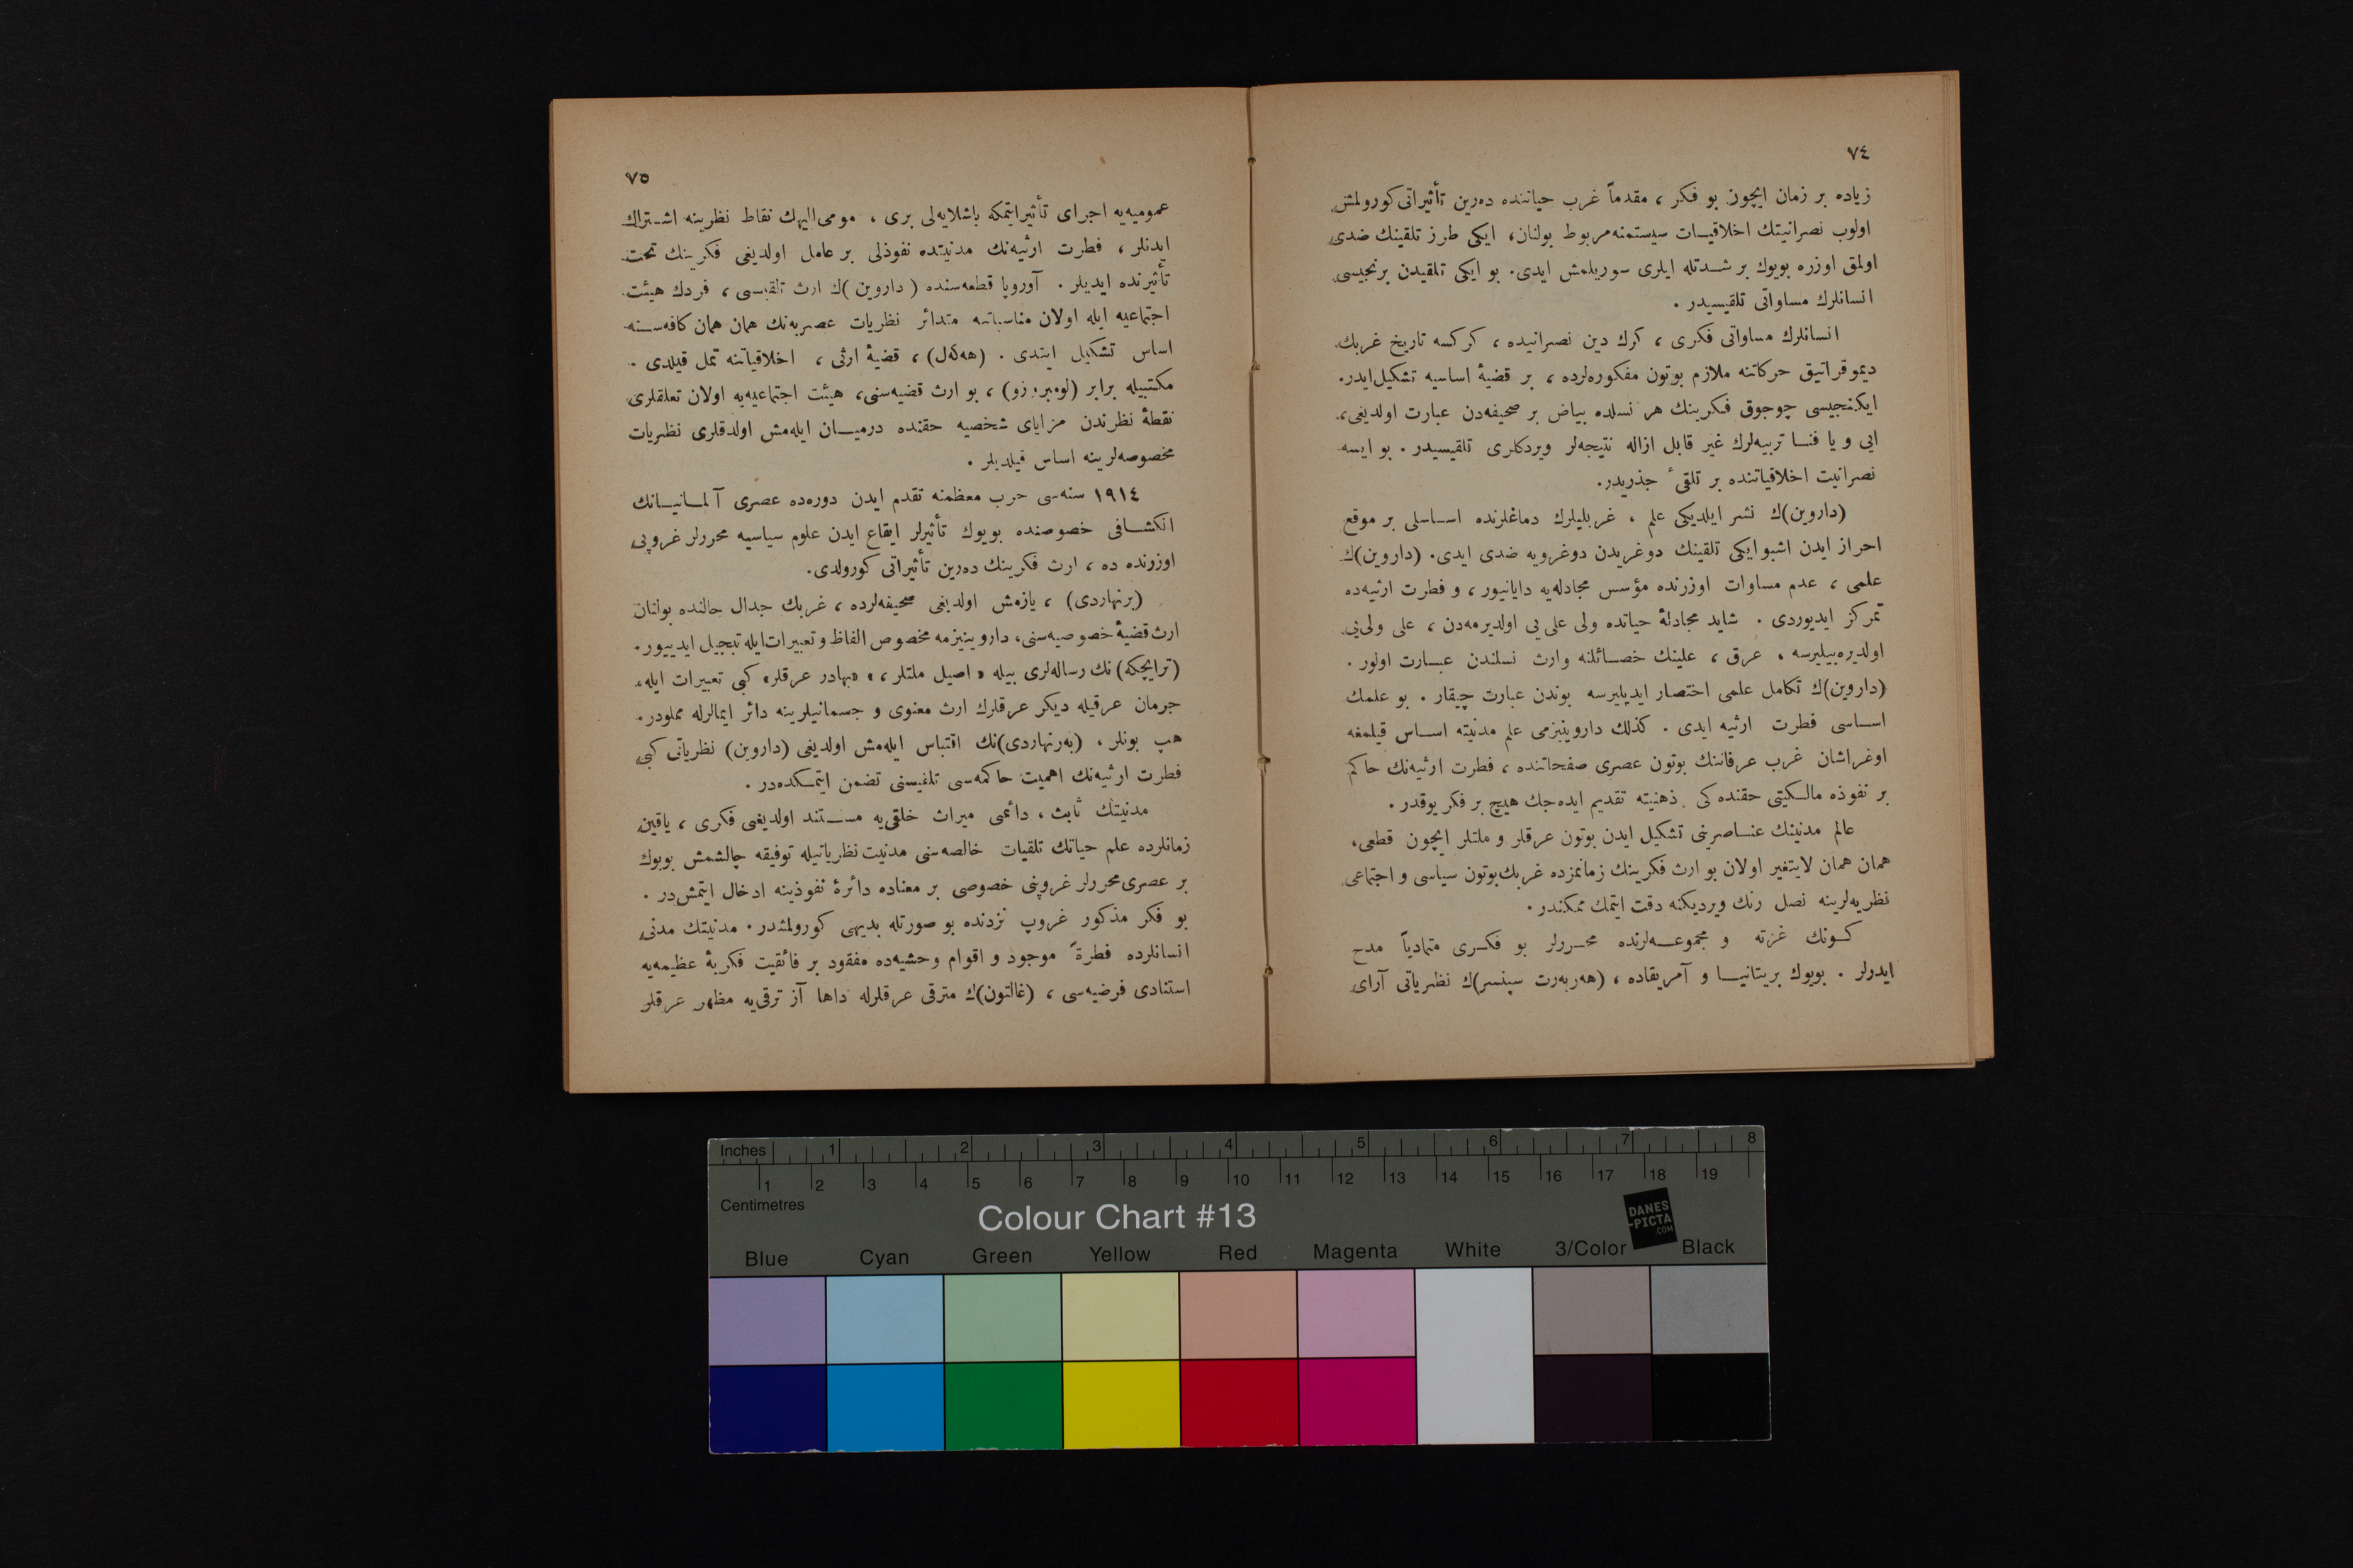 ٧٤
زياده بر زمان ايچون بو فكر ، مقدماً غرب حياتنده ده‌رين تأثيراتى كورولمش
اولوب نصرانيتك اخلاقيــات سيستمنه مربوط بولنان، ايكى طرز تلقينك ضدى
اولمق اوزره بويوك بر شــدتله ايلرى سوريلمش ايدى. بو ايكى تلقيدن برنجيسى
انسانلرك مساواتى تلقيسيدر .
انسانلرك مساواتى فكرى ، كرك دين نصرانيده ، كركسه تاريخ غربك
ديموقراتيق حركاتنه ملازم بوتون مفكوره‌لرده ، بر قضيۀ اساسيه تشكيل ايدر.
ايكنجيسى چوجوق فكرينك هر نسلده بياض بر صحيفه‌دن عبارت اولديغى،
ايى و يا فنــا تربيه‌لرك غير قابل ازاله نتيجه‌لر ويردكلرى تلقيسيدر . بو ايسه
نصرانيت اخلاقياتنده بر تلقئ جذريدر.
(داروين)ك نشر ايلديكى علم ، غربليلرك دماغلرنده اســاسلى بر موقع
احراز ايدن اشبو ايكى تلقينك دوغريدن دوغرويه ضدى ايدى. (داروين)ك
علمى ، عدم مساوات اوزرنده مؤسس مجادله‌يه دايانيور ، و فطرت ارثيه‌ده
تمركز ايديوردى . شايد مجادلۀ حياتده ولى على يى اولديرمه‌دن ، على ولى‌يى
اولديره‌بيليرسه ، عرق ، علينك خصــائلنه وارث نسلندن عبــارت اولور .
(داروين)ك تكامل علمى اختصار ايديليرسه بوندن عبارت چيقار . بو علمك
اســاسى فطرت ارثيه ايدى . كذلك داروينيزمى علم مدنيته اســاس قيلمغه
اوغراشان غرب عرفاننك بوتون عصرى صفحاتنده ، فطرت ارثيه‌نك حاكم
بر نفوذه مالــكيتى حقنده كى ذهنيته تقديم ايده‌جك هيچ بر فكر يوقدر .
عالم مدنيتك عنــاصرينى تشكيل ايدن بوتون عرقلر و ملتلر ايچون قطعى،
همان همان لايتغير اولان بو ارث فكرينك زمانمزده غربك بوتون سياسى و اجتماعى
نظريه‌لرينه نصل رنك ويرديكنه دقت ايتمك ممكندر .
كــونك غزته و مجموعــه‌لرنده محــررلر بو فكــرى متمادياً مدح
ايدرلر . بويوك بريتانيــا و آمريقاده ، (هه‌ربه‌رت سپنسر)ك نظرياتى آراى
٧٥
عموميه‌يه اجراى تأثير ايتمكه باشلايه‌لى برى ، مومى اليهك نقاط نظرينه اشــتراك
ايدنلر ، فطرت ارثيه‌نك مدنيتده نفوذلى بر عامل اولديغى فكرينك تحت
تأثيرنده ايديلر . آوروپا قطعه‌سنده (داروين)ك ارث تلقيسى ، فردك هيئت
اجتماعيه ايله اولان مناسباتنه متدائر نظريات عصريه‌نك همان همان كافه‌ســنه
اساس تشكيل ايتدى . (هه‌كل) ، قضيۀ ارثى ، اخلاقياتنه تمل قيلدى .
مكتبيله برابر (لومبروزو) ، بو ارث قضيه‌سنى، هيئت اجتماعيه‌يه اولان تعلقلرى
نقطۀ نظرندن مزاياى شخصيه حقنده درميــان ايله‌مش اولدقلرى نظريات
مخصوصه‌لرينه اساس قيلديلر .
١٩١٤ سنه‌سى حرب معظمنه تقدم ايدن دوره‌ده عصرى آلمــانيــانك
انكشــافى خصوصنده بويوك تأثيرلر ايقاع ايدن علوم سياسيه محررلر غروپى
اوزرنده ده ، ارث فكرينك ده‌رين تأثيراتى كورولدى.
(برنهاردى) ، يازمش اولديغى صحيفه‌لرده ، غربك جدال حالنده بولنان
ارث قضيۀ خصوصيه‌سنى، داروينيزمه مخصوص الفاظ و تعبيرات ايله تبجيل ايدييور.
(ترايچكه) نك رساله‌لرى بيله « اصيل ملتلر » ، «بهادر عرقلر» كبى تعبيرات ايله،
جرمان عرقيله ديكر عرقلرك ارث معنوى و جسمانيلرينه دائر ايمالرله مملودر.
هپ بونلر ، (به‌رنهاردى)نك اقتباس ايله‌مش اولديغى (داروين) نظرياتى كبى
فطرت ارثيه‌نك اهميت حاكمه‌سى تلقيسنى تضمن ايتمــكده‌در .
مدنيتك ثابت ، دائمى ميراث خلقى‌يه مســتند اولديغى فكرى ، ياقين
زمانلرده علم حياتك تلقيات خالصه‌سنى مدنيت نظرياتيله توفيقه چالشمش بويوك
بر عصرى محررلر غروپنى خصوصى بر معناده دائرۀ نفوذينه ادخال ايتمش‌در .
بو فكر مذكور غروپ نزدنده بو صورتله بديهى كورولمشدر . مدنيتك مدنى
انسانلرده فطرةً موجود و اقوام وحشيه‌ده مفقود بر فائقيت فكريۀ عظيمه‌يه
استنادى فرضيه‌سى ، (غالتون)ك مترقى عرقلرله داها آز ترقى‌يه مظهر عرقلر
Inches 1 2 3 4 5 6 7 8
1 2 3 4 5 6 7 8 9 10 11 12 13 14 15 16 17 18 19
Centimetres
Colour Chart #13
DANES
-PICTA
.COM
Blue Cyan Green Yellow Red Magenta White 3/Color Black